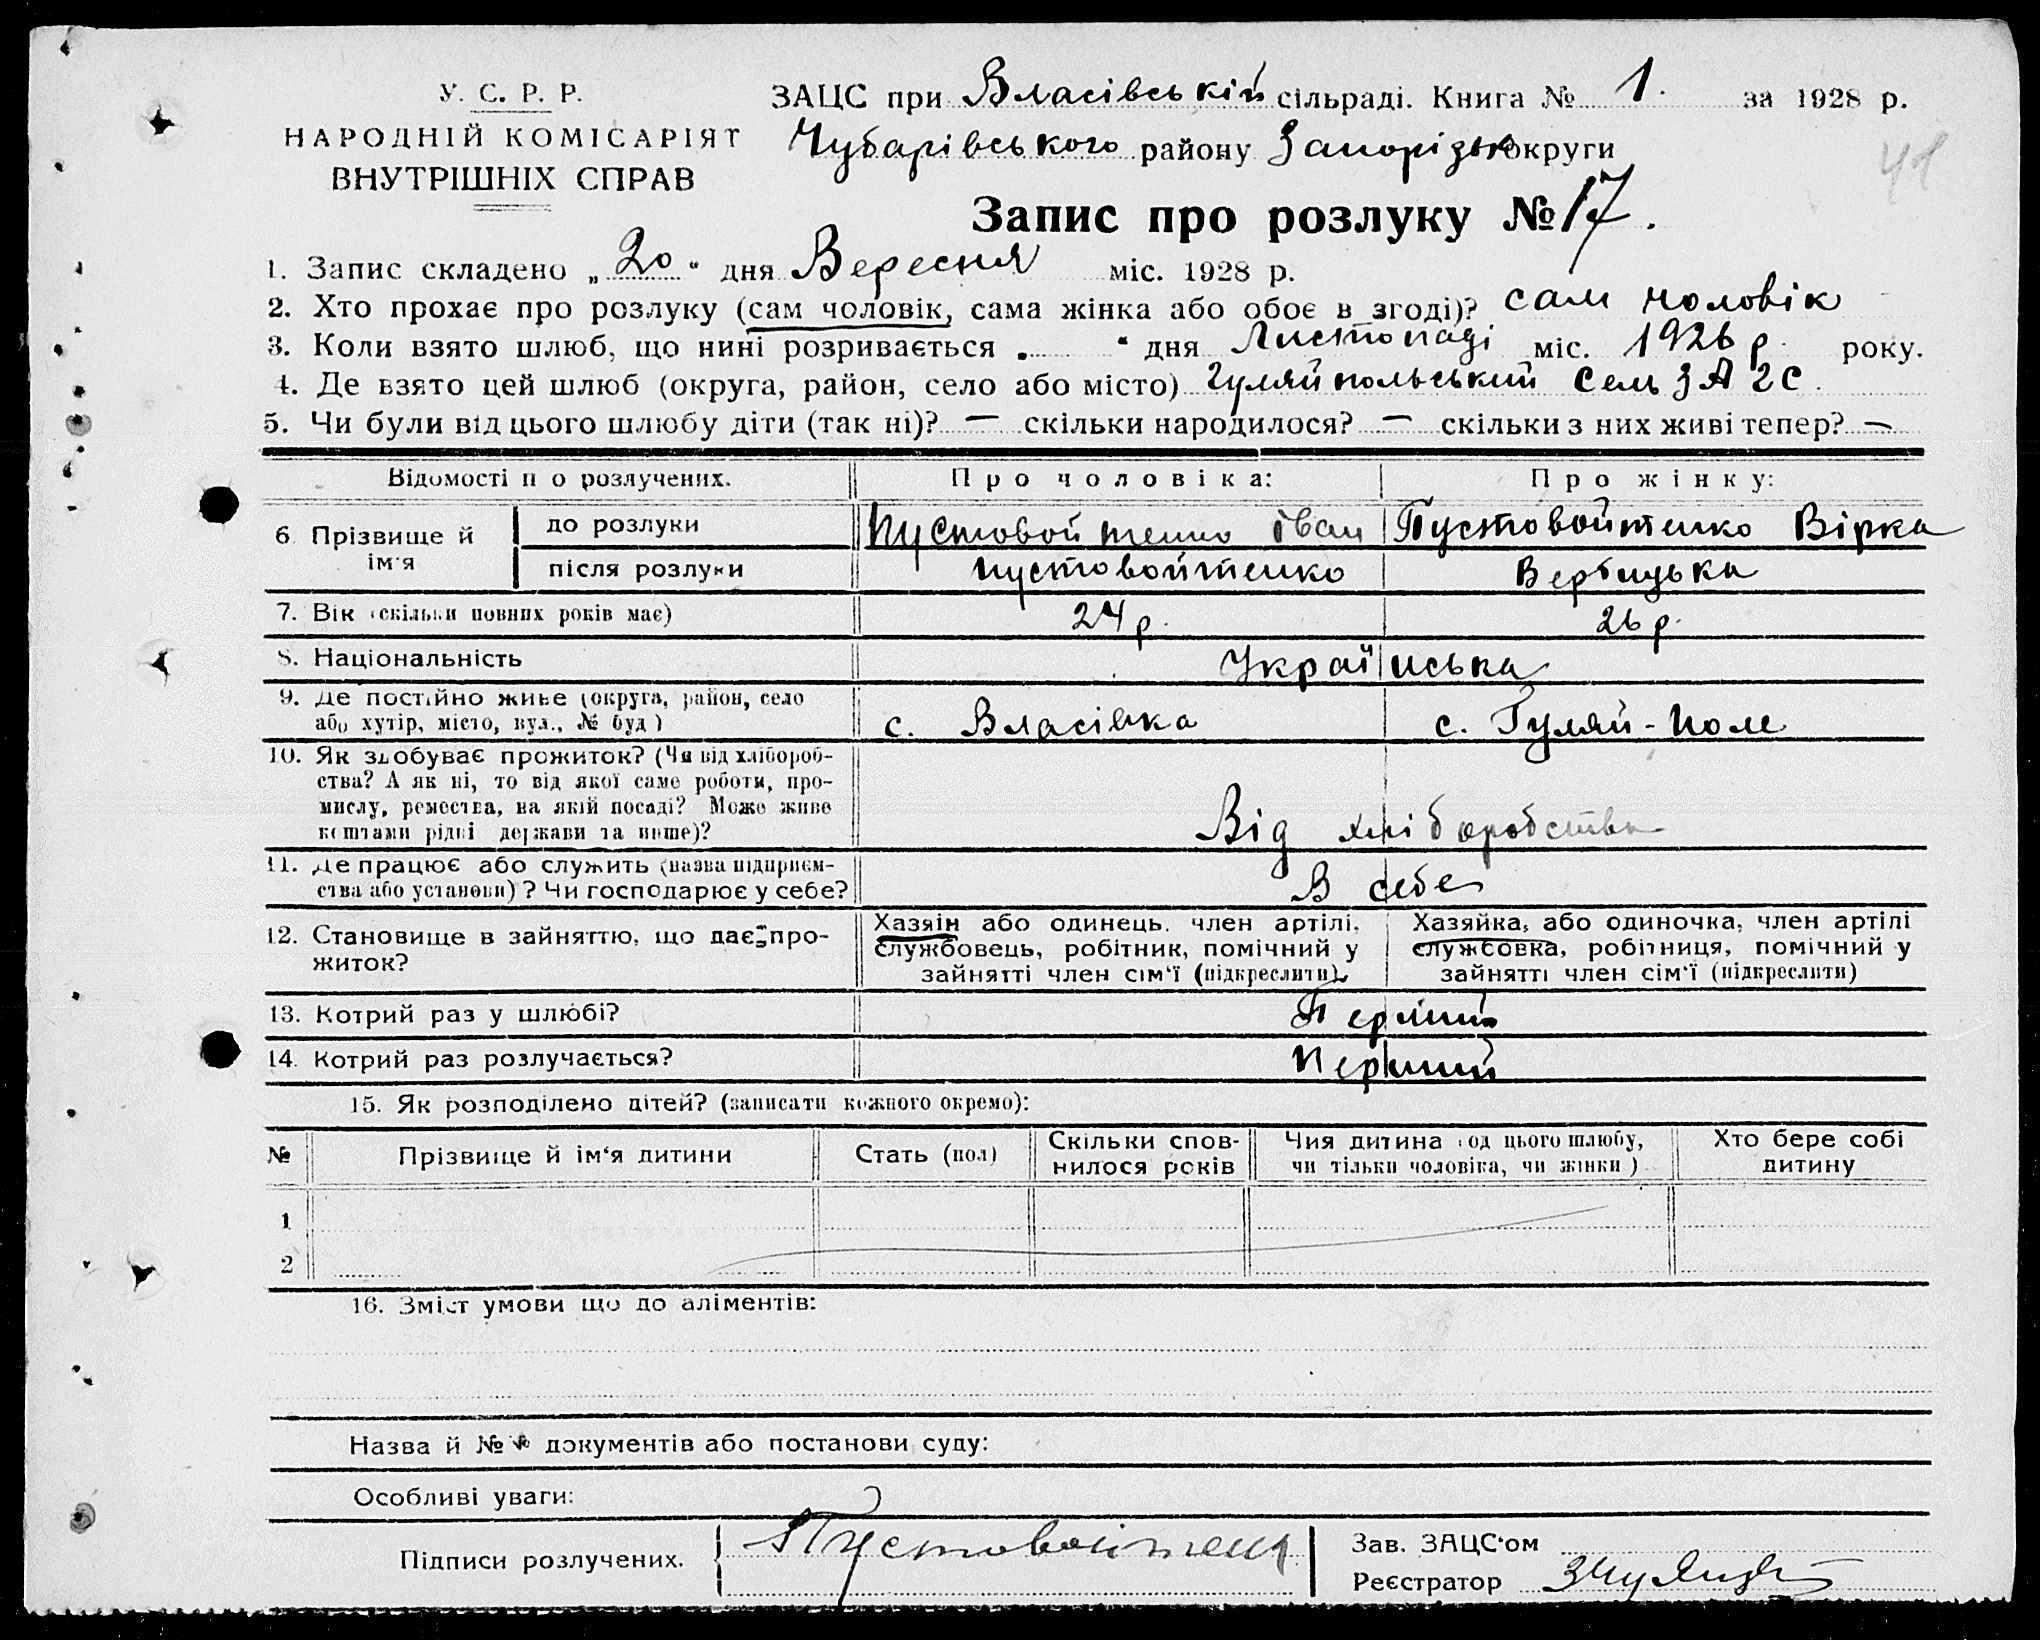 У. С. Р. Р.
НАРОДНІЙ КОМІСАРІЯТ
ВНУТРІШНІХ СПРАВ
ЗАЦС при Власівській сільраді. Книга № 1. за 1928 р.
Чубарівського району Запорізьк округи
41
Запис про розлуку № 17.
1. Запис складено „ 20 “ дня Вересня міс. 1928 р.
2. Хто прохає про розлуку (сам чоловік, сама жінка або обоє в згоді)? сам чоловік
3. Коли взято шлюб, що нині розривається „ “ дня Листопаді міс. 1926 р. року.
4. Де взято цей шлюб (округа, район, село або місто) Гуляйпольський Сель ЗАГС.
5. Чи були від цього шлюбу діти (так ні)? — скільки народилося? — скільки з них живі тепер? —
Відомості п о розлучених. Про чоловіка: Про жінку:
6. Прізвище й ім'я до розлуки Пустовойтенко Іван Пустовойтенко Вірка
після розлуки Пустовойтенко Вербицька
7. Вік (скільки повних років має) 24 р. 26 р.
8. Національність Українська
9. Де постійно живе (округа, район, село
або хутір, місто, вул., № буд) с. Власівка с. Гуляй-Поле
10. Як здобуває прожиток? (Чи від хлібороб-
ства? А як ні, то від якої саме роботи, про-
мислу, ремества, на якій посаді? Може живе
коштами рідні держави та инше)? Від хліборобства
11. Де працює або служить (назва підприєм-
ства або установи)? Чи господарює у себе? В себе
12. Становище в зайняттю, що дає про-
житок?
Хазяїн або одинець. член артілі,
службовець, робітник, помічний у
зайнятті член сім'ї (підкреслити)
Хазяйка, або одиночка, член артілі
службовка, робітниця, помічний у
зайнятті член сім'ї (підкреслити)
13. Котрий раз у шлюбі? Перший
14. Котрий раз розлучається? Перший
15. Як розподілено дітей? (записати кожного окремо):
№ Прізвище й ім'я дитини Стать (пол) Скільки спов-
нилося років Чия дитина (од цього шлюбу,
чи тільки чоловіка, чи жінки) Хто бере собі
дитину
1
2
16. Зміст умови що до аліментів:
Назва й №№ документів або постанови суду:
Особливі уваги:
Підписи розлучених. Пустовойтенк
Зав. ЗАЦС'ом
Реєстратор